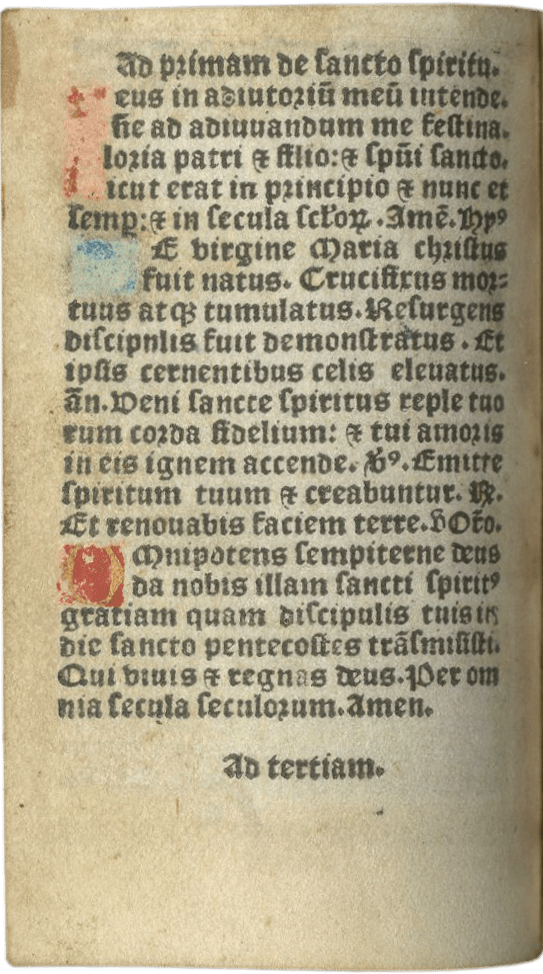 Ad primam de sancto spiritu.
eus in adiutoriū meū intende.
ne ad adiuuandum me festina.
loria patri ⁊ filio:⁊ spūi sancto.
icut erat in principio ⁊ nunc et
semp:⁊ in secula sclorꝝ. Amē. Hyꝰ
E virgine Maria christus
fuit natus. Crucifixus mor⸗
tuus atqꝫ tumulatus. Resurgens
discipulis fuit demonstratus. Et
ipsis cernentibus celis eleuatus.
ān. Veni sancte spiritus reple tuo
rum corda fidelium: ⁊ tui amoris
in eis ignem accende. ꝟꝰ. Emitte
spiritum tuum ⁊ creabuntur. ℟.
Et renouabis faciem terre. Orō.
OMnipotens sempiterne deus
da nobis illam sancti spiritꝰ
gratiam quam discipulis tuis in
die sancto pentecostes trāsmisisti.
Qui viuis ⁊ regnas deus. Per om
nia secula seculorum. Amen.
Ad tertiam.